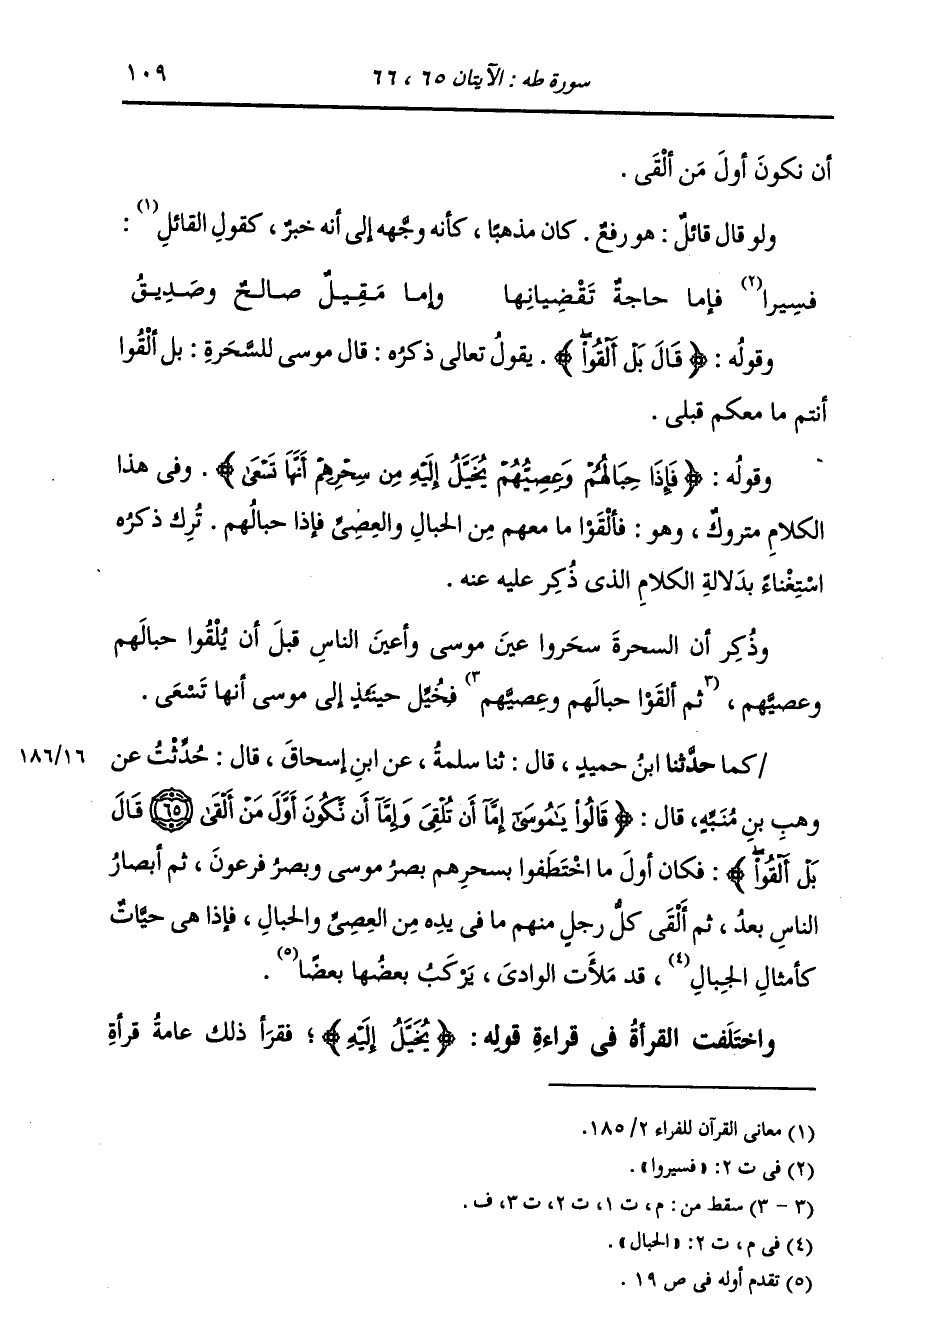 سورة طه : الآيتان ٦٥ ، ٦٦ ١٠٩
أن نكونَ أولَ مَن ألْقَى .
ولو قال قائلٌ : هو رفعٌ . كان مذهبًا ، كأنه وجَّهه إلى أنه خبرٌ ، كقولِ القائلِ(١) :
فسِيرا(٢) فإما حاجةٌ تَقْضِيانِها وإما مَقِيلٌ صالحٌ وصَدِيقُ
وقولُه : ﴿ قَالَ بَلْ أَلْقُوا۟ ۖ ﴾ . يقولُ تعالى ذكرُه : قال موسى للسَّحَرةِ : بل ألْقُوا
أنتم ما معكم قبلى .
وقولُه : ﴿ فَإِذَا حِبَالُهُمْ وَعِصِيُّهُمْ يُخَيَّلُ إِلَيْهِ مِن سِحْرِهِمْ أَنَّهَا تَسْعَىٰ ﴾ . وفى هذا
الكلامِ متروكٌ ، وهو : فألْقَوْا ما معهم مِن الحبالِ والعِصِىِّ فإذا حبالُهم . تُرِك ذكرُه
اسْتِغْناءً بدَلالةِ الكلامِ الذى ذُكِر عليه عنه .
وذُكِر أن السحرةَ سحَروا عينَ موسى وأعينَ الناسِ قبلَ أن يُلْقُوا حبالَهم
وعصيَّهم ، (٣ثم ألقَوْا حبالَهم وعِصِيَّهم٣) فخُيِّل حينَئذٍ إلى موسى أنها تَسْعَى .
/كما حدَّثنا ابنُ حميدٍ ، قال : ثنا سلمةُ ، عن ابنِ إسحاقَ ، قال : حُدِّثْتُ عن ١٨٦/١٦
وهبِ بنِ مُنَبِّهٍ، قال : ﴿ قَالُوا۟ يَٰمُوسَىٰٓ إِمَّآ أَن تُلْقِىَ وَإِمَّآ أَن نَّكُونَ أَوَّلَ مَنْ أَلْقَىٰ ۝٦٥ قَالَ
بَلْ أَلْقُوا۟ ۖ ﴾ : فكان أولَ ما اخْتَطَفوا بسحرِهم بصرُ موسى وبصرُ فرعونَ ، ثم أبصارُ
الناسِ بعدُ ، ثم أَلْقَى كلُّ رجلٍ منهم ما فى يدِه مِن العِصِىِّ والحبالِ ، فإذا هى حيَّاتٌ
كأمثالِ الجبالِ(٤) ، قد مَلأَت الوادىَ ، يَرْكَبُ بعضُها بعضًا(٥) .
واختَلَفت القرأةُ فى قراءةِ قولِه : ﴿ يُخَيَّلُ إِلَيْهِ ﴾ ؛ فقرَأ ذلك عامةُ قرأةِ
(١) معانى القرآن للفراء ٢/ ١٨٥.
(٢) فى ت ٢: «فسيروا» .
(٣ - ٣) سقط من : م، ت ١، ت ٢، ت ٣، ف .
(٤) فى م، ت ٢: «الحبال» .
(٥) تقدم أوله فى ص ١٩ .